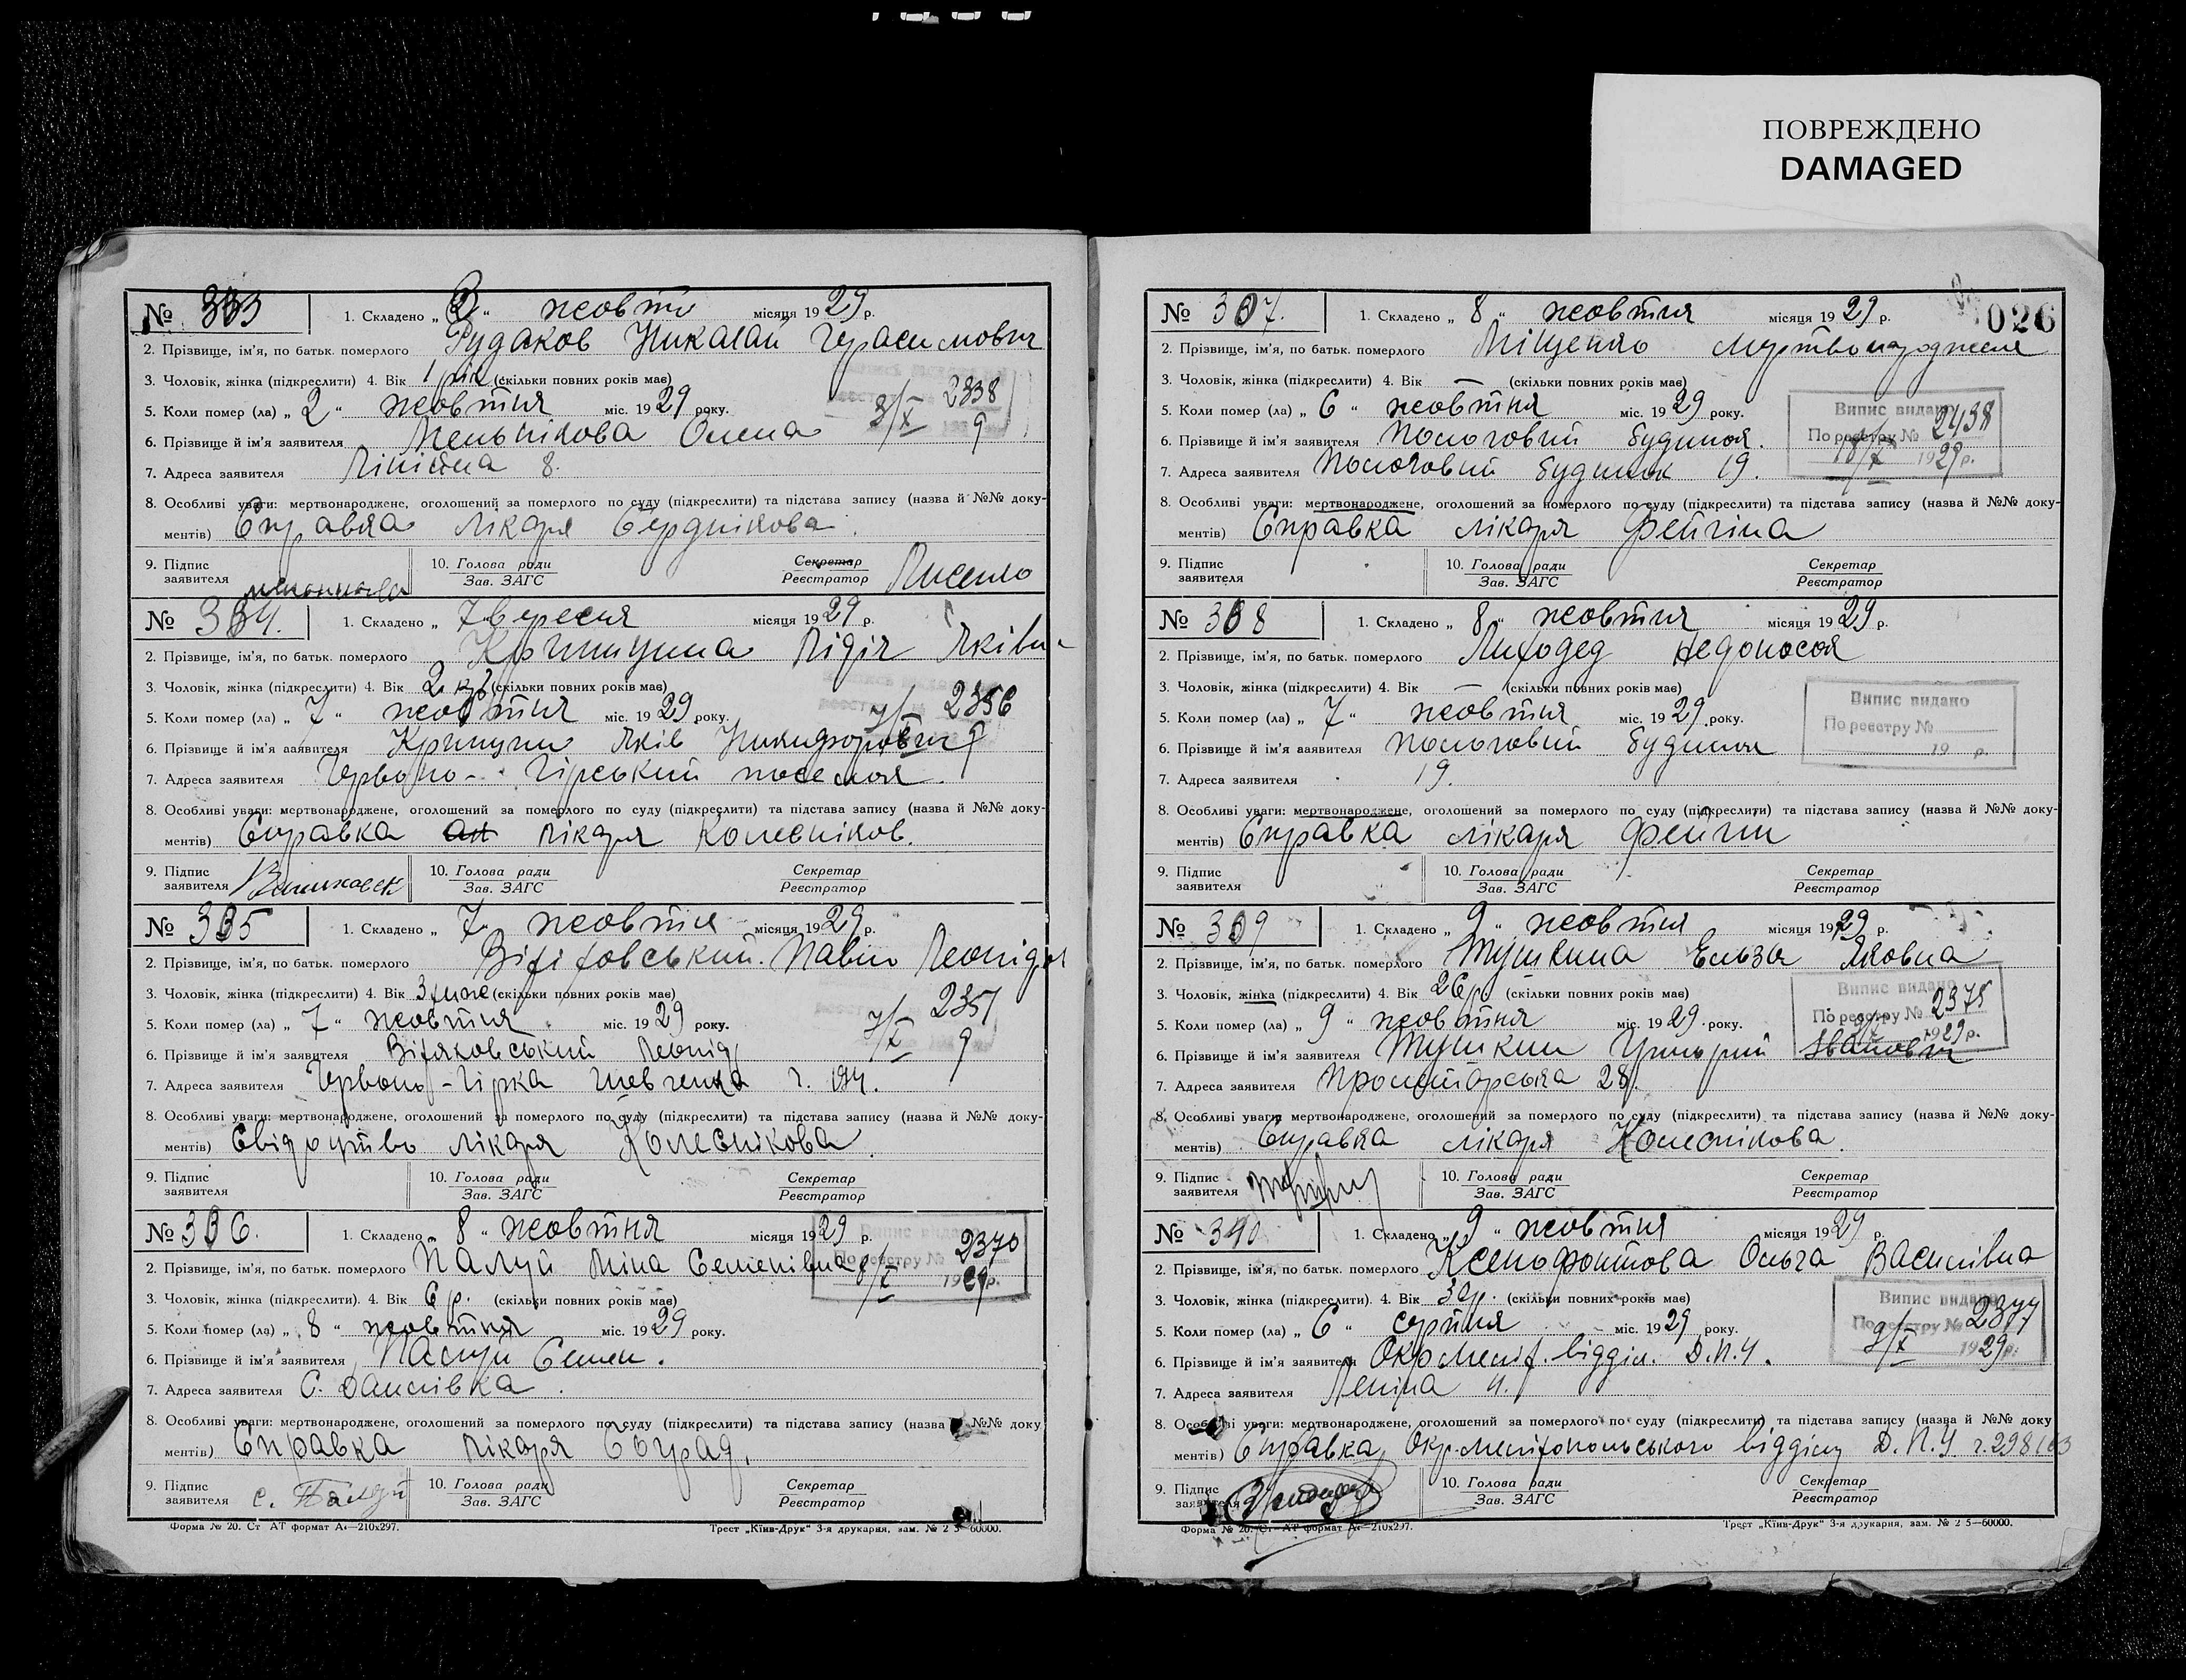 ПОВРЕЖДЕНО
DAMAGED
№ 333 1. Складено „ 3 “ жовтн місяця 1929 р.
2. Прізвище, ім'я, по батьк. померлого Рудаков Николай Герасимович
3. Чоловік, жінка (підкреслити) 4. Вік 1 рік (скільки повних років має)
2338
5. Коли помер (ла) „ 2 “ жовтня міс. 1929 року. 3/X 9
6. Прізвище й ім'я заявителя Мельнікова Олена
7. Адреса заявителя 8.
8. Особливі уваги: мертвонароджене, оголошений за померлого по суду (підкреслити) та підстава запису (назва й №№ доку-
ментів) Справка лікаря Сєрднікова
9. Підпис заявителя 10. Голова ради Зав. ЗАГС Секретар Реєстратор Лисенко
№ 334. 1. Складено „ 7 вересня місяця 1929 р.
2. Прізвище, ім'я, по батьк. померлого Лідія Яківн
3. Чоловік, жінка (підкреслити) 4. Вік 2 (скільки повних років має)
2356
5. Коли помер (ла) „ 7 “ жовтня міс. 1929 року. 7/X 9
6. Прізвище й ім'я заявителя Яків Никифорович
7. Адреса заявителя Червоно-Гірський поселок
8. Особливі уваги: мертвонароджене, оголошений за померлого по суду (підкреслити) та підстава запису (назва й №№ доку-
ментів) Справка лікаря Колесніков.
9. Підпис заявителя 10. Голова ради Зав. ЗАГС Секретар Реєстратор
№ 335 1. Складено „ 7 “ жовтня місяця 1929 р.
2. Прізвище, ім'я, по батьк. померлого Павло
3. Чоловік, жінка (підкреслити) 4. Вік 3 (скільки повних років має)
2351
5. Коли помер (ла) „ 7 “ жовтня міс. 1929 року. 7/X 9
6. Прізвище й ім'я заявителя Леонід
7. Адреса заявителя Червоно-Гірка Шевченка
8. Особливі уваги: мертвонароджене, оголошений за померлого по суду (підкреслити) та підстава запису (назва й №№ доку-
ментів) Свідоцтво лікаря Колеснікова.
9. Підпис заявителя 10. Голова ради Зав. ЗАГС Секретар Реєстратор
№ 336. 1. Складено „ 8 “ жовтня місяця 1929 р.
Випис видано
По реєстру № 2370
8/X 1929 р.
2. Прізвище, ім'я, по батьк. померлого Палуй Ліна Семенівна
3. Чоловік, жінка (підкреслити). 4. Вік 6 р. (скільки повних років має)
5. Коли помер (ла) „ 8 “ жовтня міс. 1929 року.
6. Прізвище й ім'я заявителя Палуй Семен.
7. Адреса заявителя С. Данилівка
8. Особливі уваги: мертвонароджене, оголошений за померлого по суду (підкреслити) та підстава запису (назва №№ доку
ментів) Справка лікаря
9. Підпис заявителя с. Палуй 10. Голова ради Зав. ЗАГС Секретар Реєстратор
Форма № 20. Ст АТ формат А₄—210х297. Трест „Київ-Друк“ 3-я друкарня, зам. № 2 5—60000.
026
№ 337. 1. Складено „ 8 “ жовтня місяця 1929 р.
2. Прізвище, ім'я, по батьк. померлого Міщенко мертвонароджене
3. Чоловік, жінка (підкреслити) 4. Вік — (скільки повних років має)
Випис видано
По реєстру № 2438
18/X 1929 р.
5. Коли помер (ла) „ 6 “ жовтня міс. 1929 року.
6. Прізвище й ім'я заявителя Пологовий будинок.
7. Адреса заявителя Пологовий будинок 19.
8. Особливі уваги: мертвонароджене, оголошений за померлого по суду (підкреслити) та підстава запису (назва й №№ доку-
ментів) Справка лікаря Фейгіна
9. Підпис заявителя 10. Голова ради Зав. ЗАГС Секретар Реєстратор
№ 338 1. Складено „ 8 “ жовтня місяця 1929 р.
2. Прізвище, ім'я, по батьк. померлого Лиходед недоносок
3. Чоловік, жінка (підкреслити) 4. Вік — (скільки повних років має)
Випис видано
По реєстру №
19 р.
5. Коли помер (ла) „ 7 “ жовтня міс. 1929 року.
6. Прізвище й ім'я заявителя Пологовий будинок
7. Адреса заявителя 19.
8. Особливі уваги: мертвонароджене, оголошений за померлого по суду (підкреслити) та підстава запису (назва й №№ доку-
ментів) Справка лікаря Фейгин
9. Підпис заявителя 10. Голова ради Зав. ЗАГС Секретар Реєстратор
№ 339 1. Складено „ 9 “ жовтня місяця 1929 р.
2. Прізвище, ім'я, по батьк. померлого Тушкина Ельза Яковна
3. Чоловік, жінка (підкреслити) 4. Вік 26 р. (скільки повних років має)
Випис видано
По реєстру № 2375
1929 р.
5. Коли помер (ла) „ 9 “ жовтня міс. 1929 року.
6. Прізвище й ім'я заявителя Тушкин Григорий Іванович
7. Адреса заявителя Пролетарська 28.
8. Особливі уваги мертвонароджене, оголошений за померлого по суду (підкреслити) та підстава запису (назва й №№ доку-
ментів) Справка лікаря Колеснікова.
9. Підпис заявителя 10. Голова ради Зав. ЗАГС Секретар Реєстратор
№ 340 1. Складено „ 9 “ жовтня місяця 1929 р.
2. Прізвище, ім'я, по батьк. померлого Ксенофонтова Ольга Василівна
3. Чоловік, жінка (підкреслити). 4. Вік (скільки повних років має)
Випис видано
По реєстру № 2377
9/X 1929 р.
5. Коли помер (ла) „ 6 “ серпня міс. 1929 року.
6. Прізвище й ім'я заявителя Окр. Меліт. відділ. Д.П.У.
7. Адреса заявителя Леніна
8. Особливі уваги: мертвонароджене, оголошений за померлого по суду (підкреслити) та підстава запису (назва й №№ доку
ментів) Справка, Окр. Мелітопольського відділу Д.П.У
9. Підпис заявителя 10. Голова ради Зав. ЗАГС Секретар Реєстратор
Форма № 20. Ст АТ формат А₄—210х297. Трест „Київ-Друк“ 3-я друкарня, зам. № 2 5—60000.